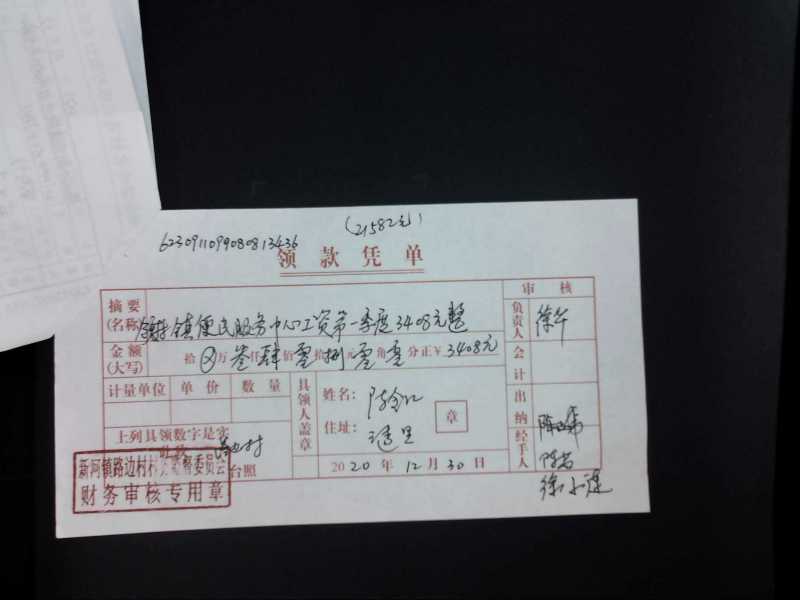 (21582元)
6230911099080813436
领款凭单
审核
摘要
(名称) 镇便民服务中心工资第一季度3408元整
负责人 徐
金额
(大写) 拾 万 叁仟 肆佰 零拾 捌元 零角 零分 正 ¥ 3408元
会计
计量单位 单价 数量
具领人盖章
姓名: 陈
住址:
章
出纳
上列具领数字是实
此致
村
台照
2020年12月30日
经手人
徐小
新河镇路边村村务监督委员会
财务审核专用章